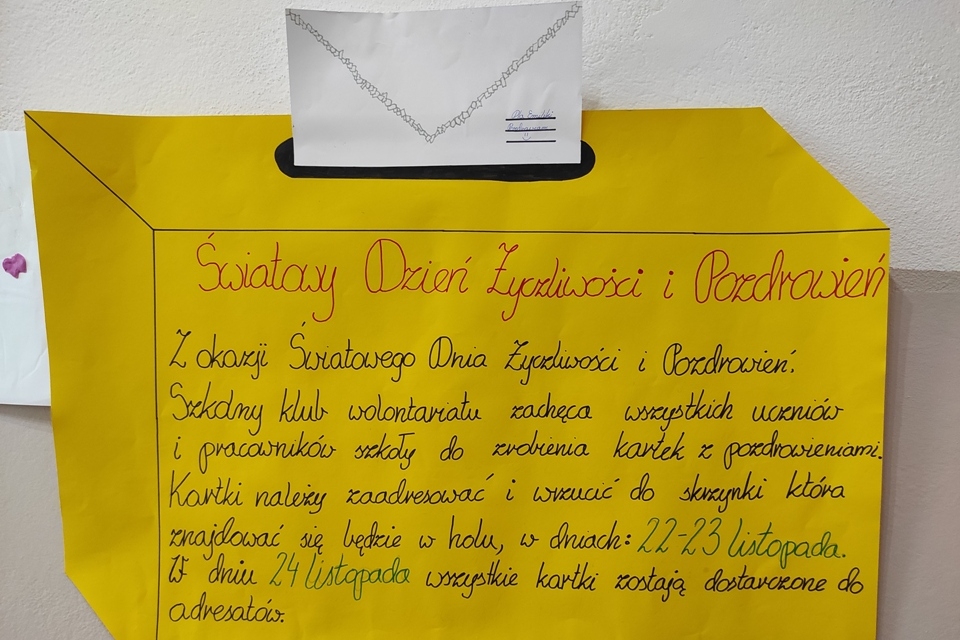 Światowy Dzień Życzliwości i Pozdrowień
Z okazji Światowego Dnia Życzliwości i Pozdrowień.
Szkolny klub wolontariatu zachęca wszystkich uczniów
i pracowników szkoły do zrobienia kartek z pozdrowieniami.
Kartki należy zaadresować i wrzucić do skrzynki która
znajdować się będzie w holu, w dniach: 22-23 listopada.
W dniu 24 listopada wszystkie kartki zostają dostarczone do
adresatów.